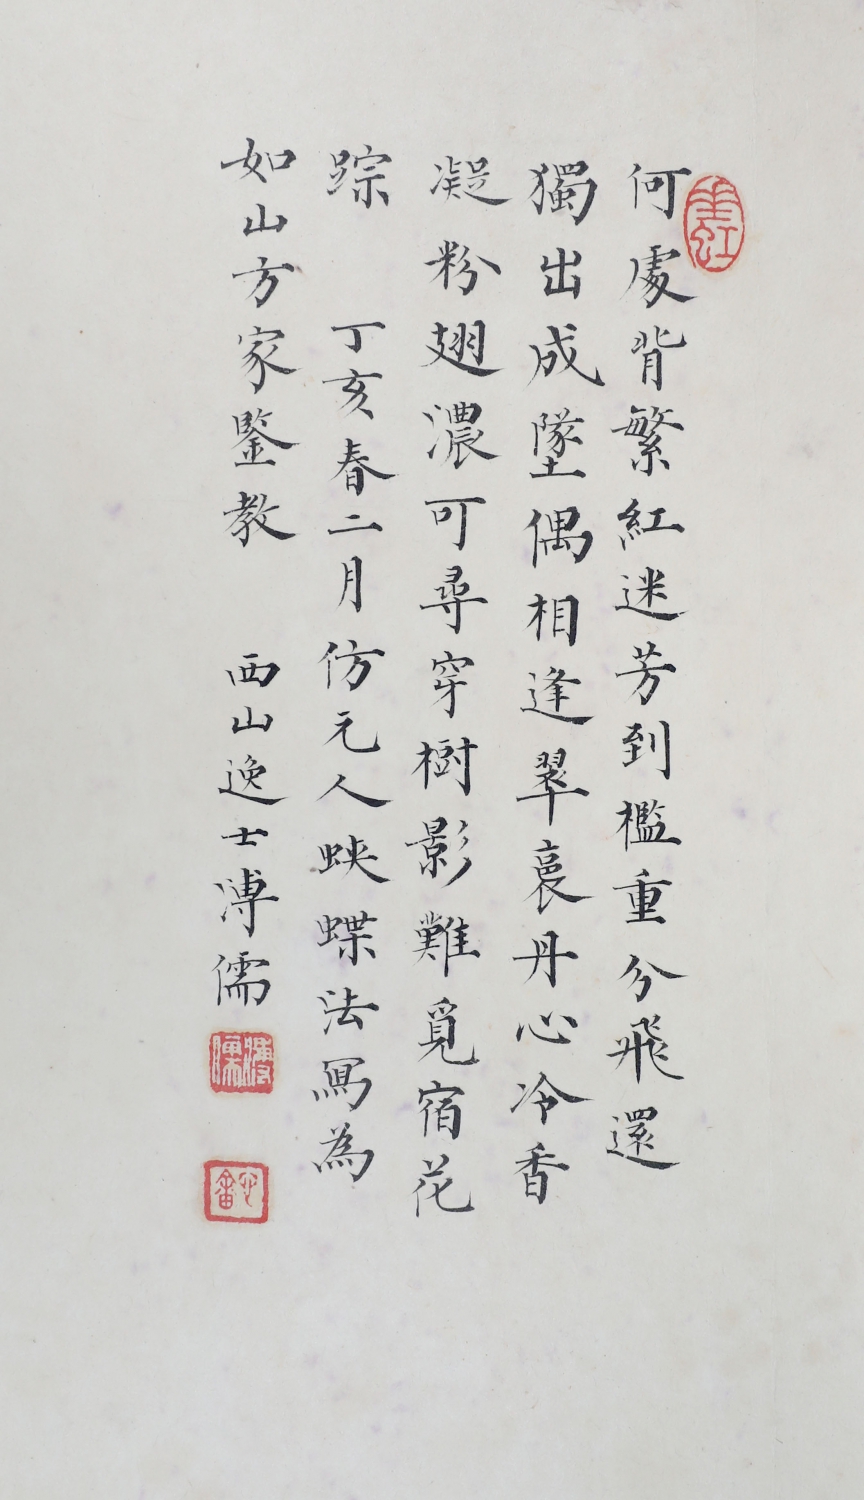 何處背繁紅迷芳到檻重分飛還
獨出成墜偶相逢翠裛丹心冷香
凝粉翅濃可尋穿樹影難覓宿花
踪 丁亥春二月仿元人蛺蝶法寫為
如山方家鑒教 西山逸士溥儒
溥儒